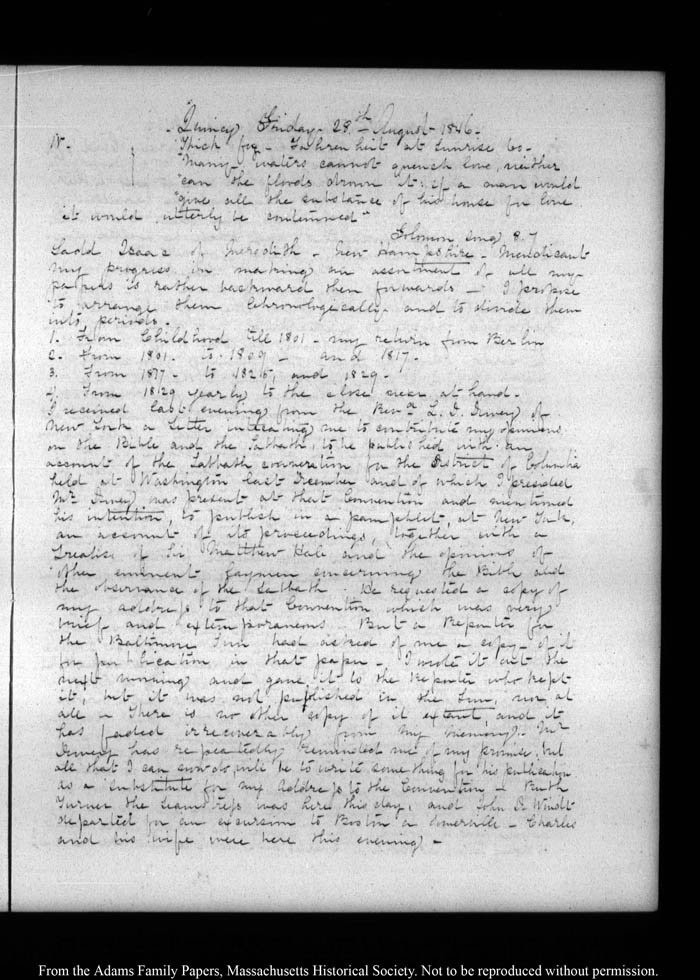 Quincy Friday. 28th August 1846.
IV. Thick fog - Fahrenheit at Sunrise 60.
"Many waters cannot quench love, neither
"can the floods drown it: if a man would
"give all the substance of his house for love
"it would utterly be contemned"
Solomon song 8.7
Ladd Isaac of Meredith - New Hampshire - Mendicant
My progress in making an assortment of all my
papers is rather backward than forwards - I propose
to arrange them Chronologically and to divide them
into periods.
1. From Childhood till 1801 - my return from Berlin
2. From 1801. to 1809 - and 1817.
3. From 1817 - to 1825, and 1829.
4. From 1829 yearly to the close near at hand.
I received last evening from the Revd. L. D. Dewey of
New York a Letter entreating me to contribute my opinions
on the Bible and the Sabbath, to be published with an
account of the Sabbath convention for the District of Columbia
held at Washington last December and of which I presided
Mr. Dewey was present at that Convention and mentioned
his intention, to publish in a pamphlet, at New York,
an account of its proceedings, together with a
Treatise of Sir Matthew Hale and the opinions of
other eminent Laymen concerning the Bible and
the observance of the Sabbath. He requested a copy of
my address to that Convention which was very
brief and extemporaneous. But a Reporter for
the Baltimore Sun had asked of me a copy of it
for publication in that paper. I wrote it out the
next morning and gave it to the Reporter who kept
it, but it was not published in the Sun, nor at
all - There is no other copy of it extant, and it
has faded irrecoverably from my memory. Mr
Dewey has repeatedly reminded me of my promise, but
all that I can now do will be to write something for his publication
as a substitute for my address to the Convention - Ruth
Turner the seamstress was here this day, and John D. Windt
departed for an excursion to Boston & Somerville - Charles
and his wife were here this evening -
From the Adams Family Papers, Massachusetts Historical Society. Not to be reproduced without permission.